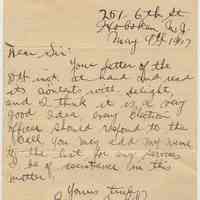 251. 6th St
Hoboken N.J.
May 9th 1917
Dear Sir:
Your letter of the
8th inst. at hand and read
its contents with delight,
and I think it is a very
good idea every election
officer should respond to the
Call you may add my name
to the list for any services
of assistance in this
matter,
Yours truly